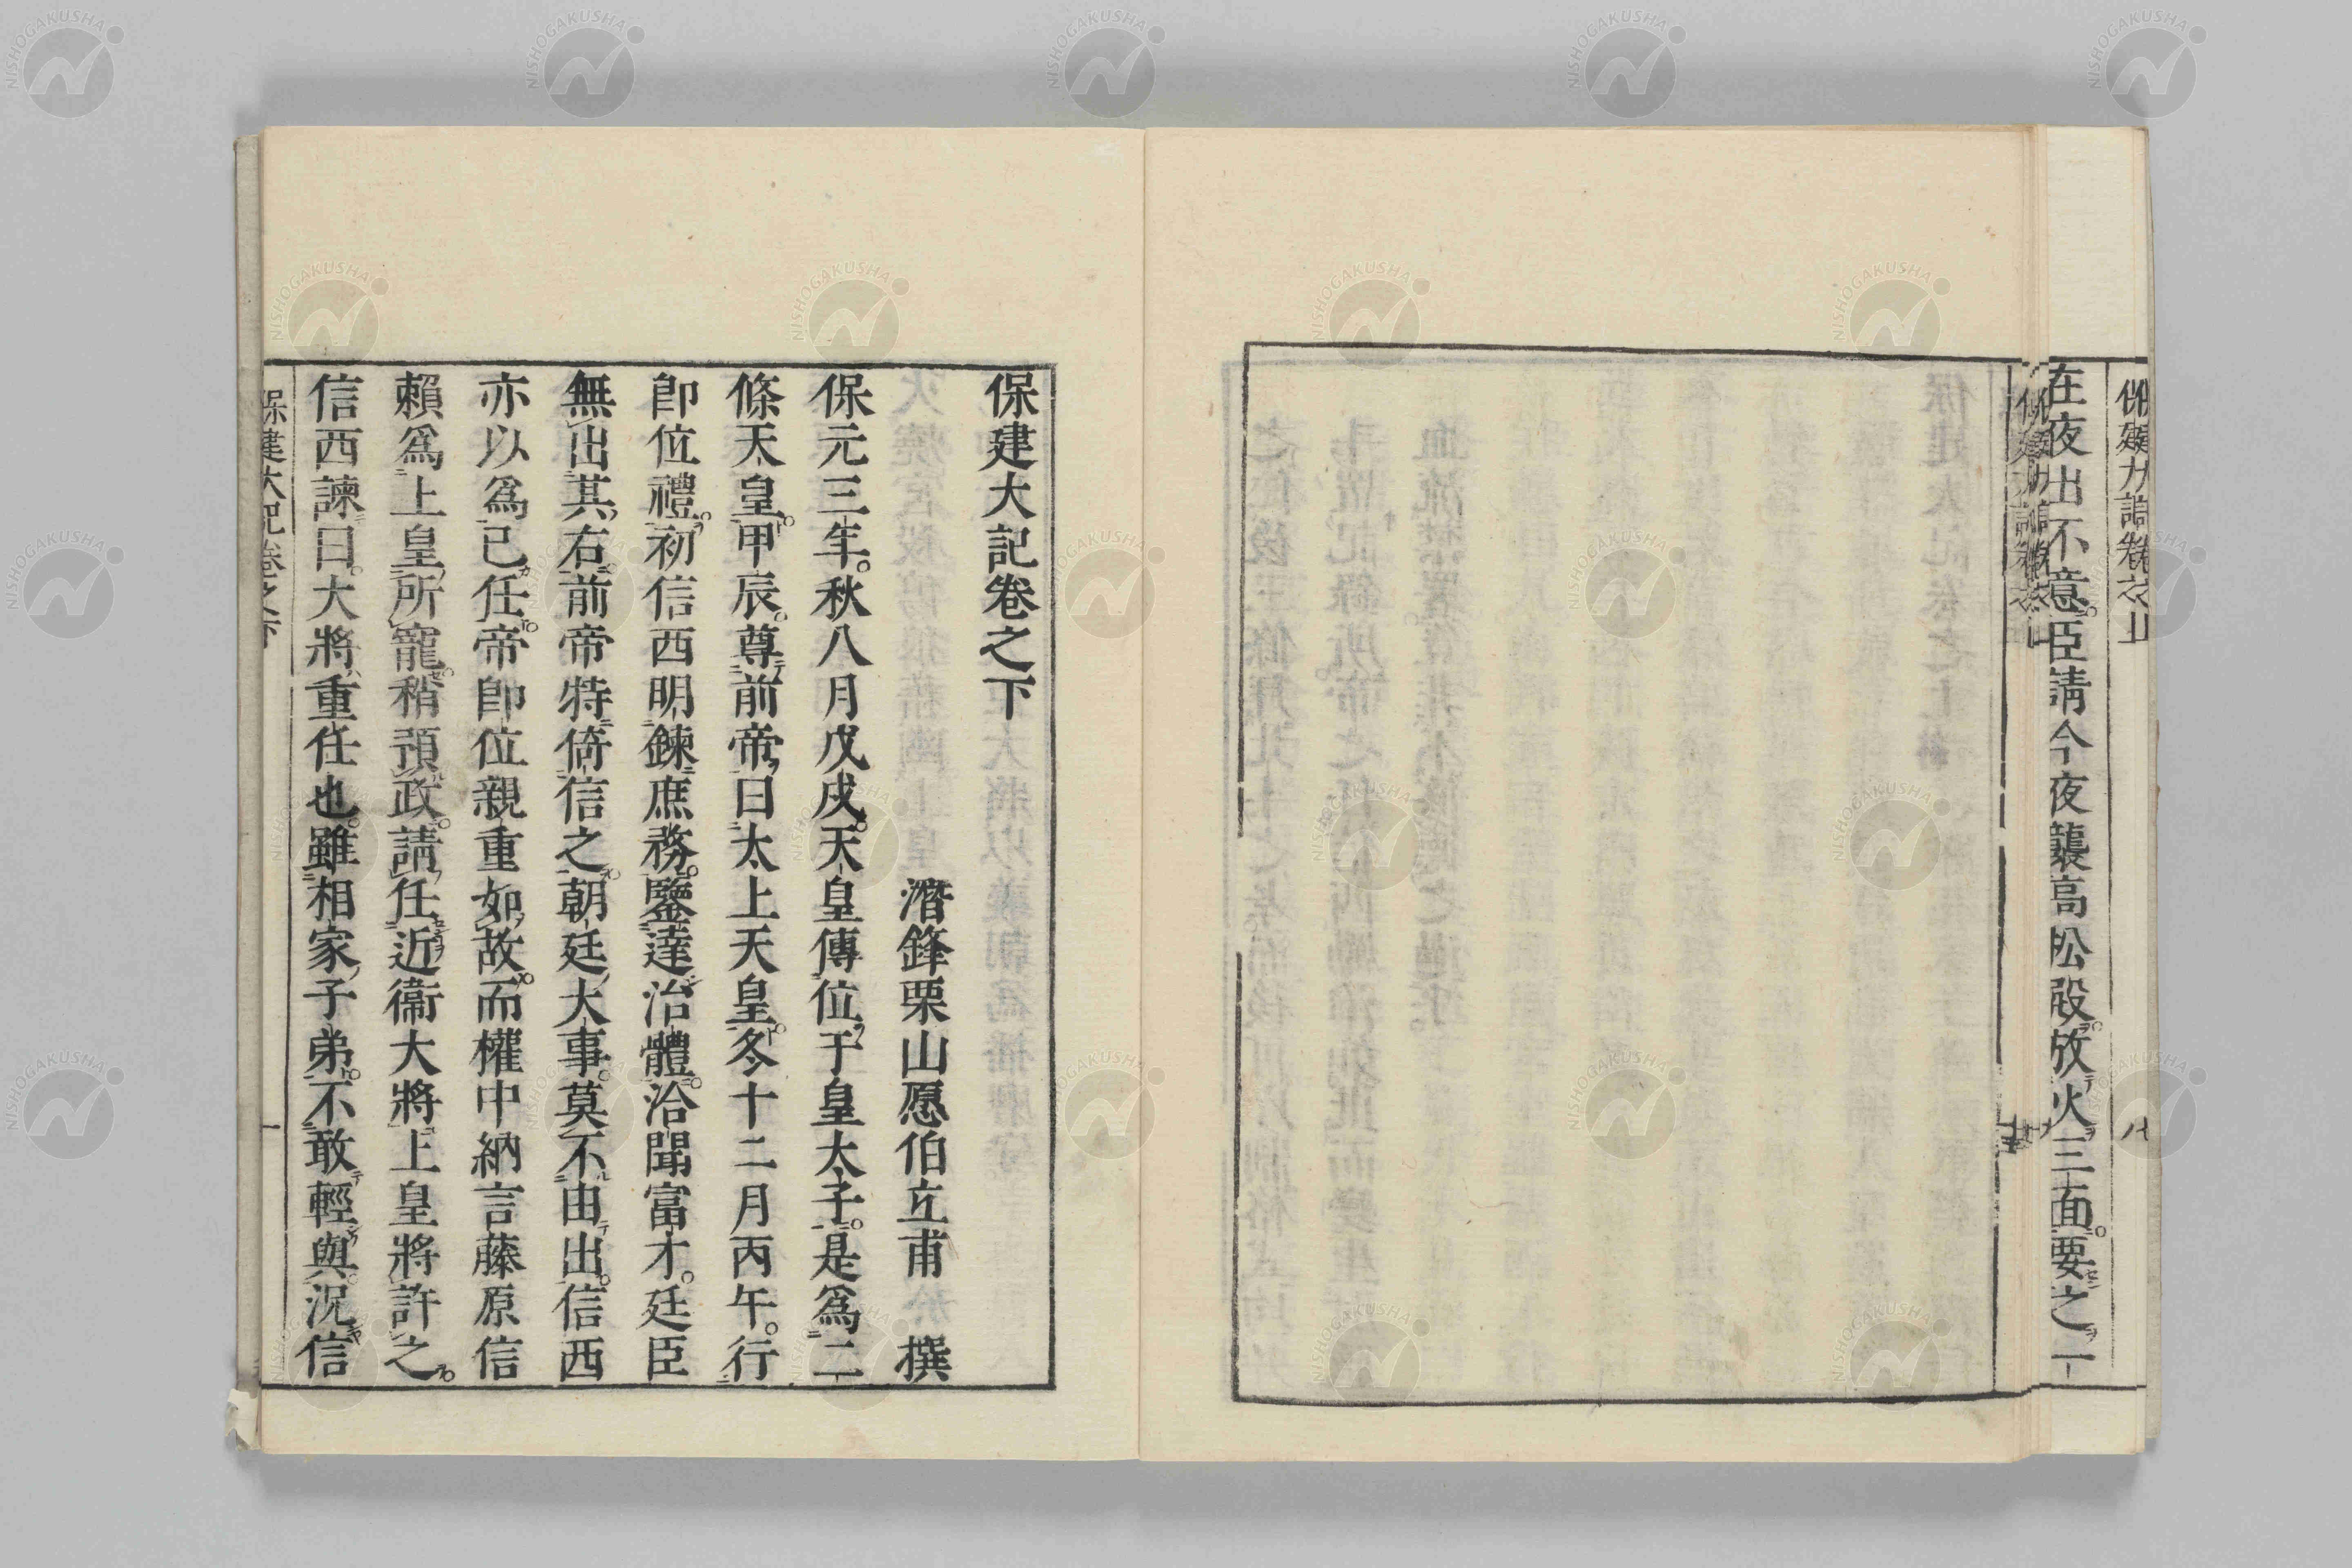 在夜出不意臣請今夜襲高松殿放火三面要之一
保建大記卷之下
潛鋒栗山愿伯立甫 撰
保元三年秋八月戊戌天皇傳位于皇太子是爲二
條天皇甲辰尊前帝曰太上天皇冬十二月丙午行
卽位禮初信西明鍊庶務鑒達治體洽聞富才廷臣
無出其右前帝特倚信之朝廷大事莫不由出信西
亦以爲己任帝卽位親重如故而權中納言藤原信
賴爲上皇所寵稍預政請任近衞大將上皇將許之
信西諫曰大將重任也雖相家子弟不敢輕與況信
保建大記卷之下 一
NISHOGAKUSHA